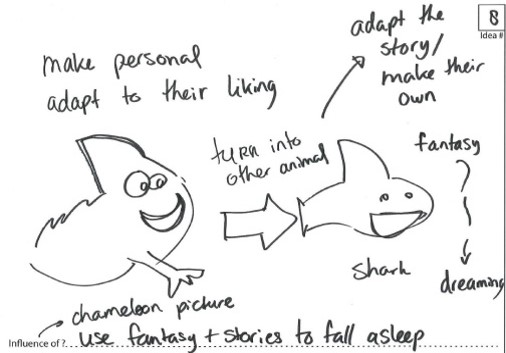 8
Idea #
make personal
adapt to their liking
adapt the
story/
make their
own
turn into
other animal
fantasy
dreaming
shark
chameleon picture
Influence of ?. use fantasy + stories to fall asleep